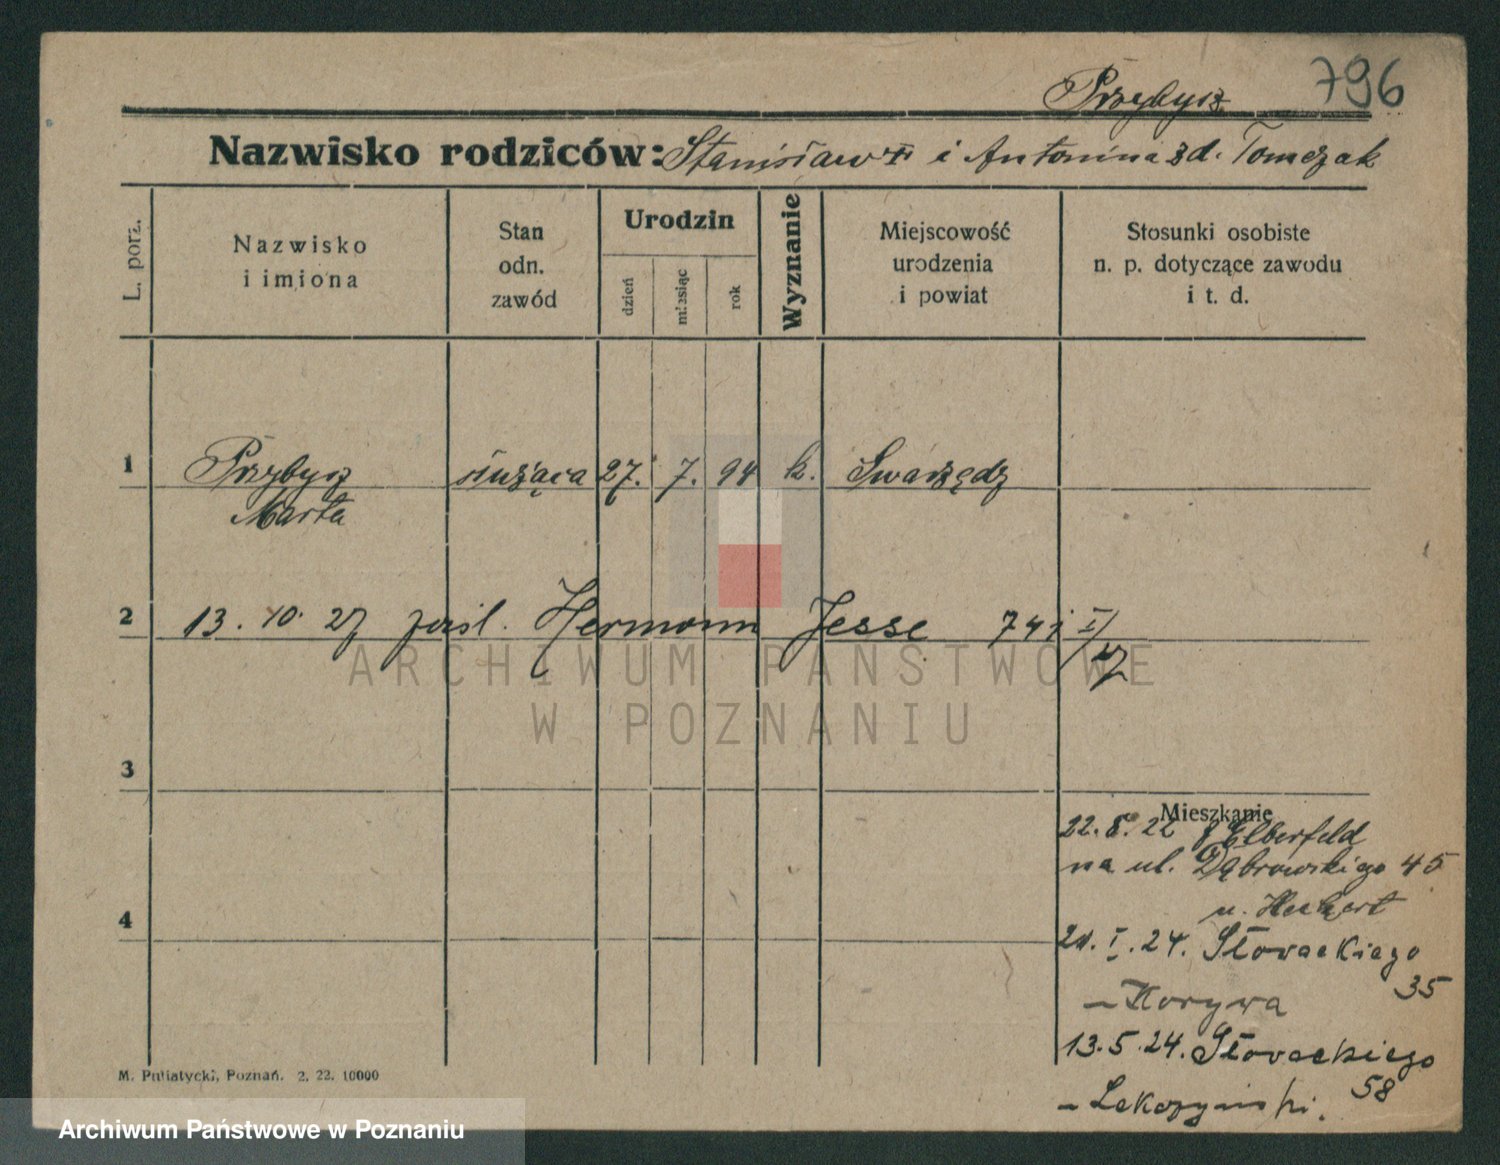 796
Przybysz
Nazwisko rodziców: Stanisław i Antonina zd. Tomczak
L. porz.
Nazwisko
i imiona
Stan
odn.
zawód
Urodzin
dzień
miesiąc
rok
Wyznanie
Miejscowość
urodzenia
i powiat
Stosunki osobiste
n. p. dotyczące zawodu
i t. d.
1 Przybysz służąca 27. 7. 94 k. Swarzędz
Marta
2 13. 10. 27 zaśl. Hermann Jesse 741 I/
27
3
Mieszkanie
22. 8. 22 z Elberfeld
na ul. Dąbrowskiego 45
u. Herbert
4
I. 24. Słowackiego
35
– Korywa
13. 5. 24. Słowackiego
58
M. Putiatycki, Poznań. 2. 22. 10000
ARCHIWUM PAŃSTWOWE
W POZNANIU
Archiwum Państwowe w Poznaniu